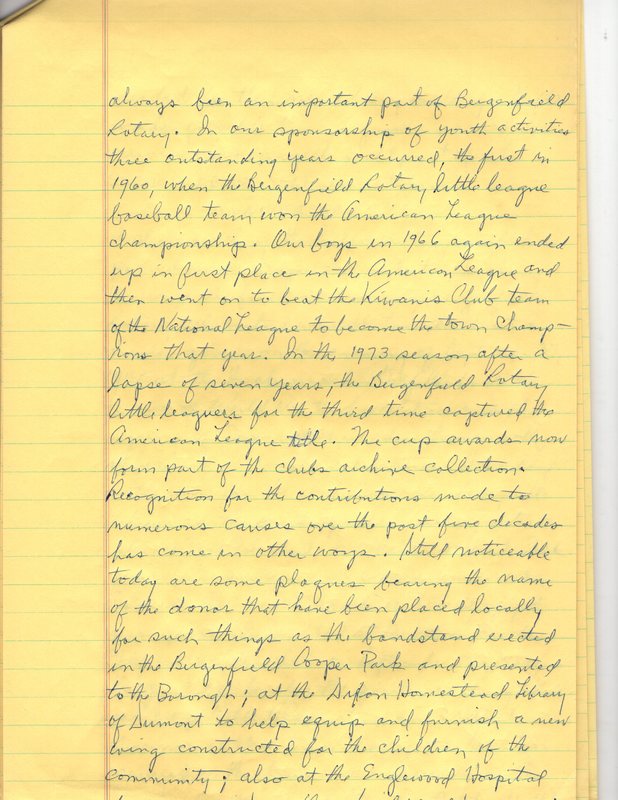 always been an important part of Bergenfield
Rotary. In our sponsorship of youth activities
three outstanding years occurred, the first in
1960, when the Bergenfield Rotary little league
baseball team won the American League
championship. Our boys in 1966 again ended
up in first place in the American League and
then went on to beat the Kiwanis Club team
of the National League to become the town champ-
ions that year. In the 1973 season after a
lapse of seven years, the Bergenfield Rotary
little leaguers for the third time captured the
American League title. The cup awards now
form part of the clubs archive collection.
Recognition for the contributions made to
numerous causes over the past five decades
has come in other ways. Still noticeable
today are some plaques bearing the name
of the donor that have been placed locally
for such things as the bandstand erected
in the Bergenfield Cooper Park and presented
to the Borough; at the Dixon Homestead Library
of Dumont to help equip and furnish a new
wing constructed for the children of the
community; also at the Englewood Hospital